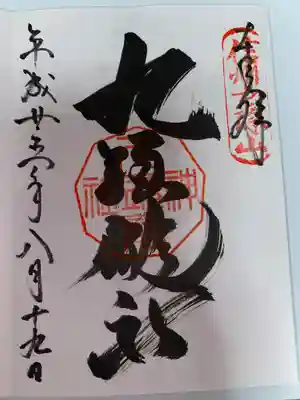 奉拝
九頭龍社
平成廿年八月十九日